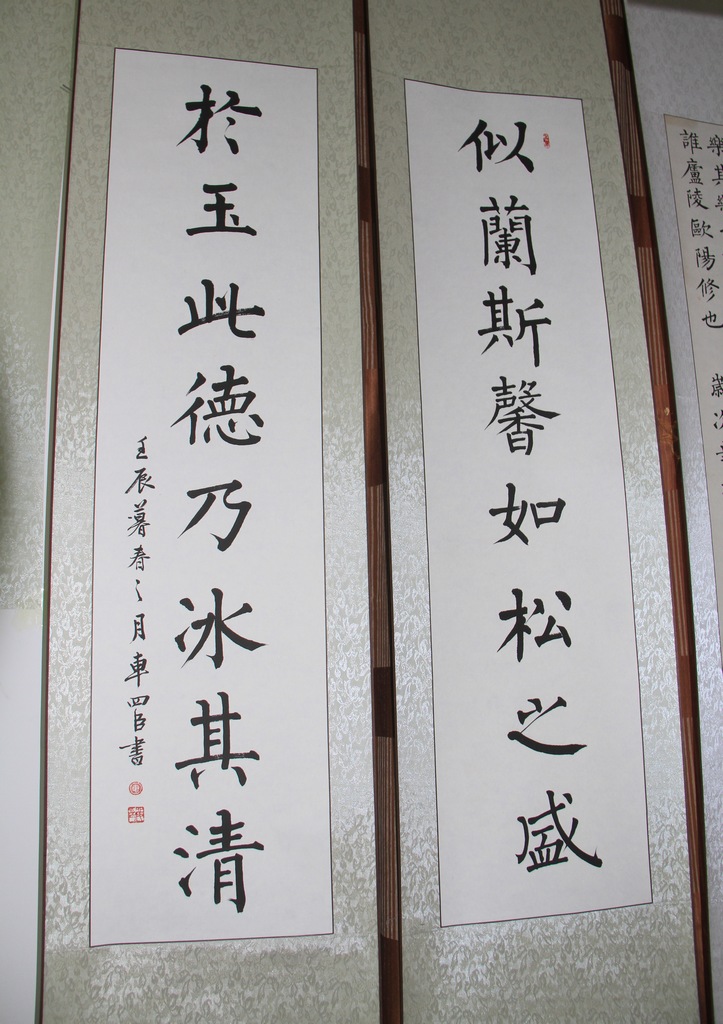 樂其樂
誰廬陵歐陽修也
似蘭斯馨如松之盛
於玉此德乃冰其清
壬辰暮春之月車四臣書